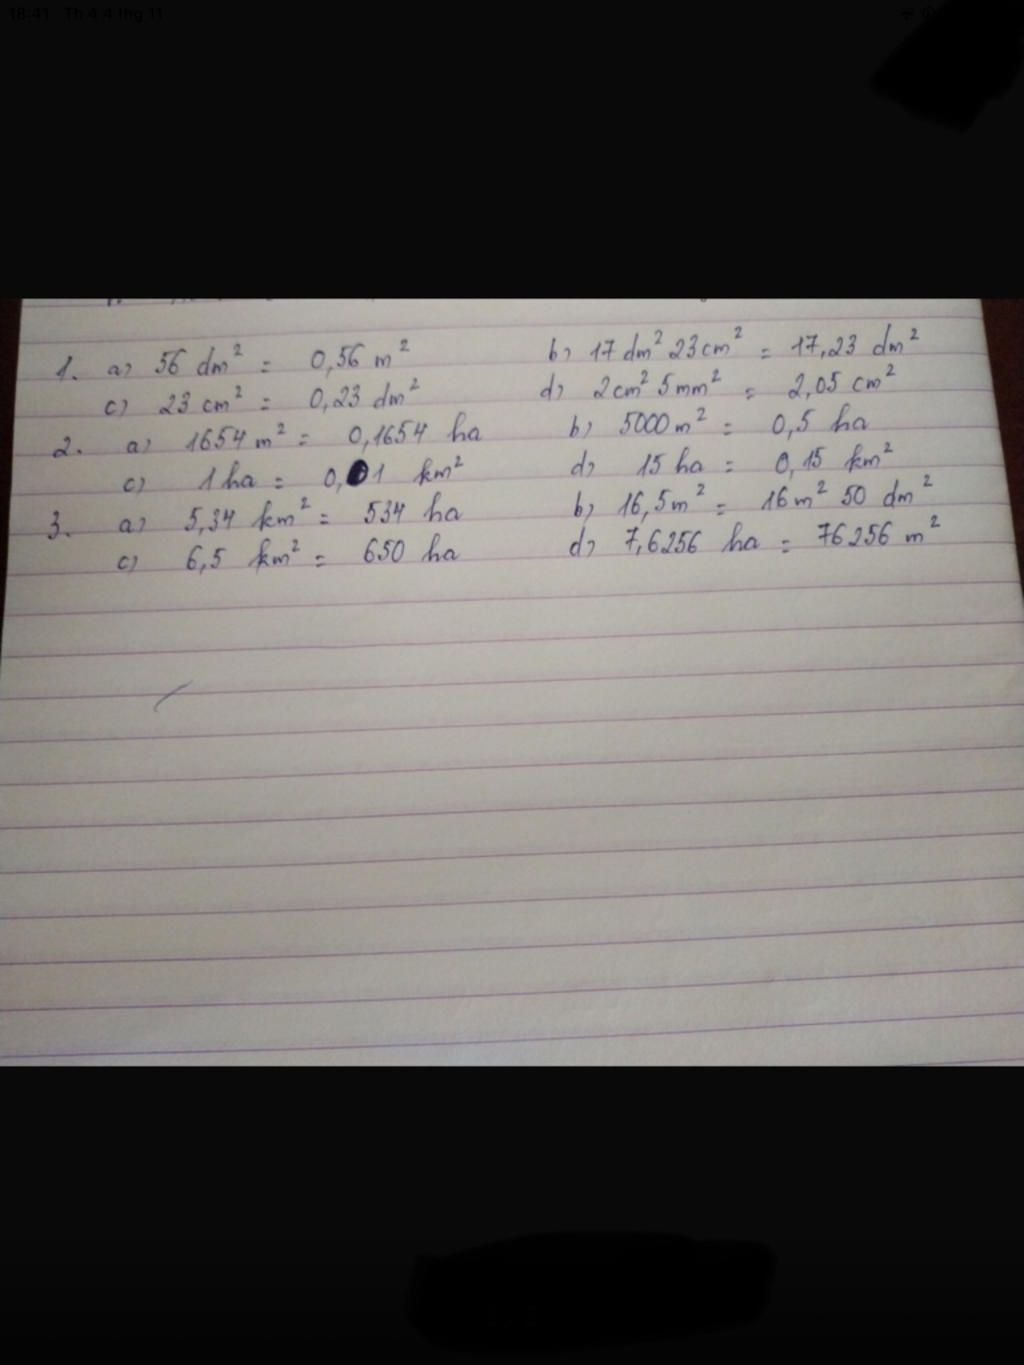 18:41 Th 4 4 thg 11
1. a) 56 dm² = 0,56 m² b) 17 dm² 23 cm² = 17,23 dm²
c) 23 cm² = 0,23 dm² d) 2 cm² 5 mm² = 2,05 cm²
2. a) 1654 m² = 0,1654 ha b) 5000 m² = 0,5 ha
c) 1 ha = 0,01 km² d) 15 ha = 0,15 km²
3. a) 5,34 km² = 534 ha b) 16,5 m² = 16 m² 50 dm²
c) 6,5 km² = 650 ha d) 7,6256 ha = 76256 m²